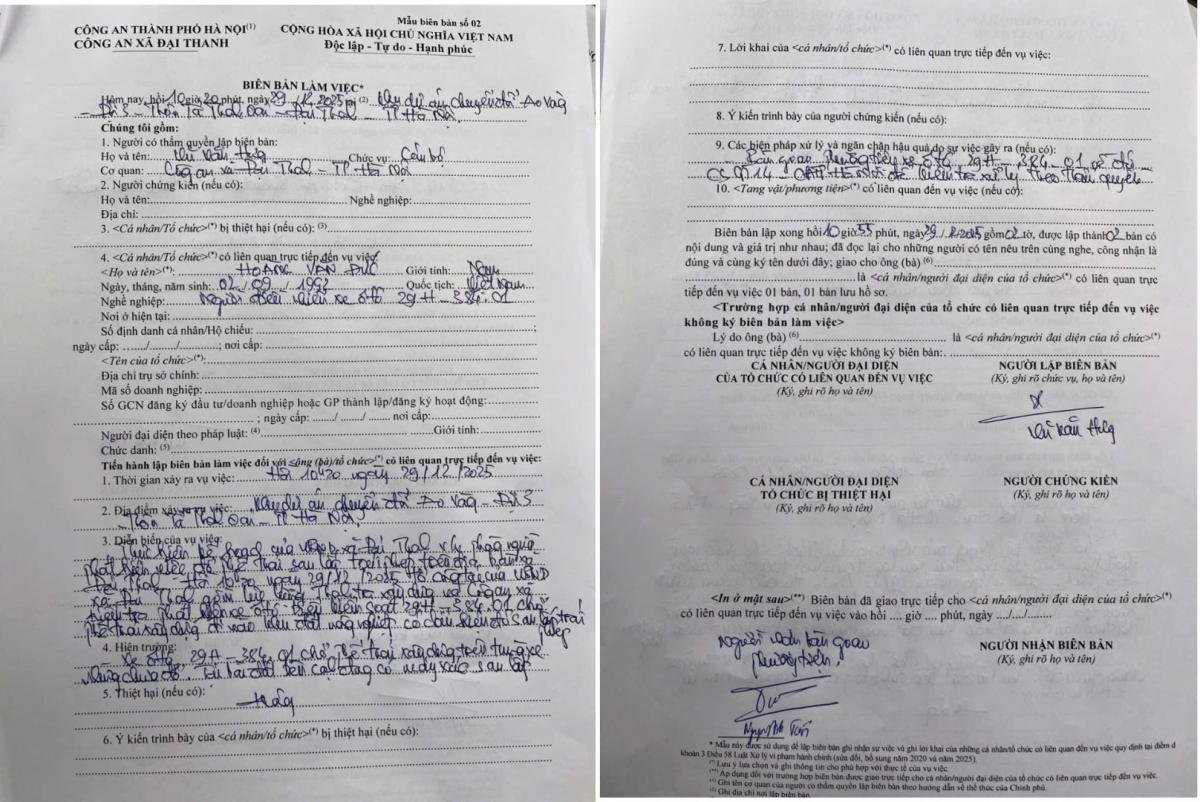 CÔNG AN THÀNH PHỐ HÀ NỘI(1)
CÔNG AN XÃ ĐẠI THANH
Mẫu biên bản số 02
CỘNG HÒA XÃ HỘI CHỦ NGHĨA VIỆT NAM
Độc lập - Tự do - Hạnh phúc
BIÊN BẢN LÀM VIỆC*
Hôm nay, hồi 10 giờ 20 phút, ngày 29/12/2025 tại (2) Khu dự án chuyển đổi Ao Vàq
- ĐX3 - Thôn Tả Thanh Oai - Đại Thanh - TP Hà Nội
Chúng tôi gồm:
1. Người có thẩm quyền lập biên bản:
Họ và tên: Văn Hưng Chức vụ: Cán bộ
Cơ quan: Công an xã Đại Thanh - TP Hà Nội
2. Người chứng kiến (nếu có):
Họ và tên: Nghề nghiệp:
Địa chỉ:
3. <Cá nhân/Tổ chức>(*) bị thiệt hại (nếu có): (3)
4. <Cá nhân/Tổ chức>(*) có liên quan trực tiếp đến vụ việc
<Họ và tên>(*): HOÀNG VĂN ĐỨC Giới tính: Nam
Ngày, tháng, năm sinh: 02/09/1993 Quốc tịch: Việt Nam
Nghề nghiệp: Người điều khiển xe ôtô 29H - 384.01
Nơi ở hiện tại:
Số định danh cá nhân/Hộ chiếu: ;
ngày cấp: ....../......./.........; nơi cấp:
<Tên của tổ chức>(*):
Địa chỉ trụ sở chính:
Mã số doanh nghiệp:
Số GCN đăng ký đầu tư/doanh nghiệp hoặc GP thành lập/đăng ký hoạt động:
; ngày cấp: ..../......./......... nơi cấp:
Người đại diện theo pháp luật: (4) Giới tính:
Chức danh: (5)
Tiến hành lập biên bản làm việc đối với <ông (bà)/tổ chức>(*) có liên quan trực tiếp đến vụ việc:
1. Thời gian xảy ra vụ việc: Hồi 10h20 ngày 29/12/2025
2. Địa điểm xảy ra vụ việc: Khu dự án chuyển đổi Ao Vàq - ĐX3
- Thôn Tả Thanh Oai - TP Hà Nội
3. Diễn biến của vụ việc:
Thực hiện kế hoạch của UBND xã Đại Thanh
phát hiện xe ôtô đổ phế thải san lấp trái phép trên địa bàn xã
Đại Thanh - Hồi 10h20 ngày 29/12/2025 tổ công tác của UBND
xã Đại Thanh gồm lực lượng Thanh tra xây dựng và Công an xã
kiểm tra phát hiện xe ôtô biển kiểm soát 29H - 384.01 chở
phế thải xây dựng đi vào khu đất nông nghiệp có dấu hiệu đổ san lấp trái
phép
4. Hiện trường:
- Xe ôtô 29H - 384.01 chở phế thải xây dựng trên thùng xe
nhưng chưa đổ. Tại bãi đất bên cạnh có máy xúc san lấp
5. Thiệt hại (nếu có):
Không
6. Ý kiến trình bày của <cá nhân/tổ chức>(*) bị thiệt hại (nếu có):
7. Lời khai của <cá nhân/tổ chức>(*) có liên quan trực tiếp đến vụ việc:
8. Ý kiến trình bày của người chứng kiến (nếu có):
9. Các biện pháp xử lý và ngăn chặn hậu quả do sự việc gây ra (nếu có):
- Bàn giao phương tiện xe ôtô 29H - 384.01 về đội
CSGT 14 CATP Hà Nội để kiểm tra xử lý theo thẩm quyền
10. <Tang vật/phương tiện>(*) có liên quan đến vụ việc (nếu có):
Biên bản lập xong hồi 10 giờ 55 phút, ngày 29/12/2025 gồm 02 tờ, được lập thành 02 bản có
nội dung và giá trị như nhau; đã đọc lại cho những người có tên nêu trên cùng nghe, công nhận là
đúng và cùng ký tên dưới đây; giao cho ông (bà) (6)
là <cá nhân/người đại diện của tổ chức>(*) có liên quan trực
tiếp đến vụ việc 01 bản, 01 bản lưu hồ sơ.
<Trường hợp cá nhân/người đại diện của tổ chức có liên quan trực tiếp đến vụ việc
không ký biên bản làm việc>
Lý do ông (bà) (6) là <cá nhân/người đại diện của tổ chức>(*)
có liên quan trực tiếp đến vụ việc không ký biên bản:
CÁ NHÂN/NGƯỜI ĐẠI DIỆN
CỦA TỔ CHỨC CÓ LIÊN QUAN ĐẾN VỤ VIỆC
(Ký, ghi rõ họ và tên)
NGƯỜI LẬP BIÊN BẢN
(Ký, ghi rõ chức vụ, họ và tên)
Văn Hưng
CÁ NHÂN/NGƯỜI ĐẠI DIỆN
TỔ CHỨC BỊ THIỆT HẠI
(Ký, ghi rõ họ và tên)
NGƯỜI CHỨNG KIẾN
(Ký, ghi rõ họ và tên)
<In ở mặt sau>(**) Biên bản đã giao trực tiếp cho <cá nhân/người đại diện của tổ chức>(*)
có liên quan trực tiếp đến vụ việc vào hồi .... giờ .... phút, ngày ..../..../......
Người nhận bàn giao
phương tiện
NGƯỜI NHẬN BIÊN BẢN
(Ký, ghi rõ họ và tên)
* Mẫu này được sử dụng để lập biên bản ghi nhận sự việc và ghi lời khai của những cá nhân/tổ chức có liên quan đến vụ việc quy định tại điểm d
khoản 3 Điều 58 Luật Xử lý vi phạm hành chính (sửa đổi, bổ sung năm 2020 và năm 2025).
(*) Lưu ý lựa chọn và ghi thông tin cho phù hợp với thực tế của vụ việc.
(**) Áp dụng đối với trường hợp biên bản được giao trực tiếp cho cá nhân/người đại diện của tổ chức có liên quan trực tiếp đến vụ việc.
(1) Ghi tên cơ quan của người có thẩm quyền lập biên bản theo hướng dẫn về thể thức của Chính phủ.
(2) Ghi địa chỉ nơi lập biên bản.